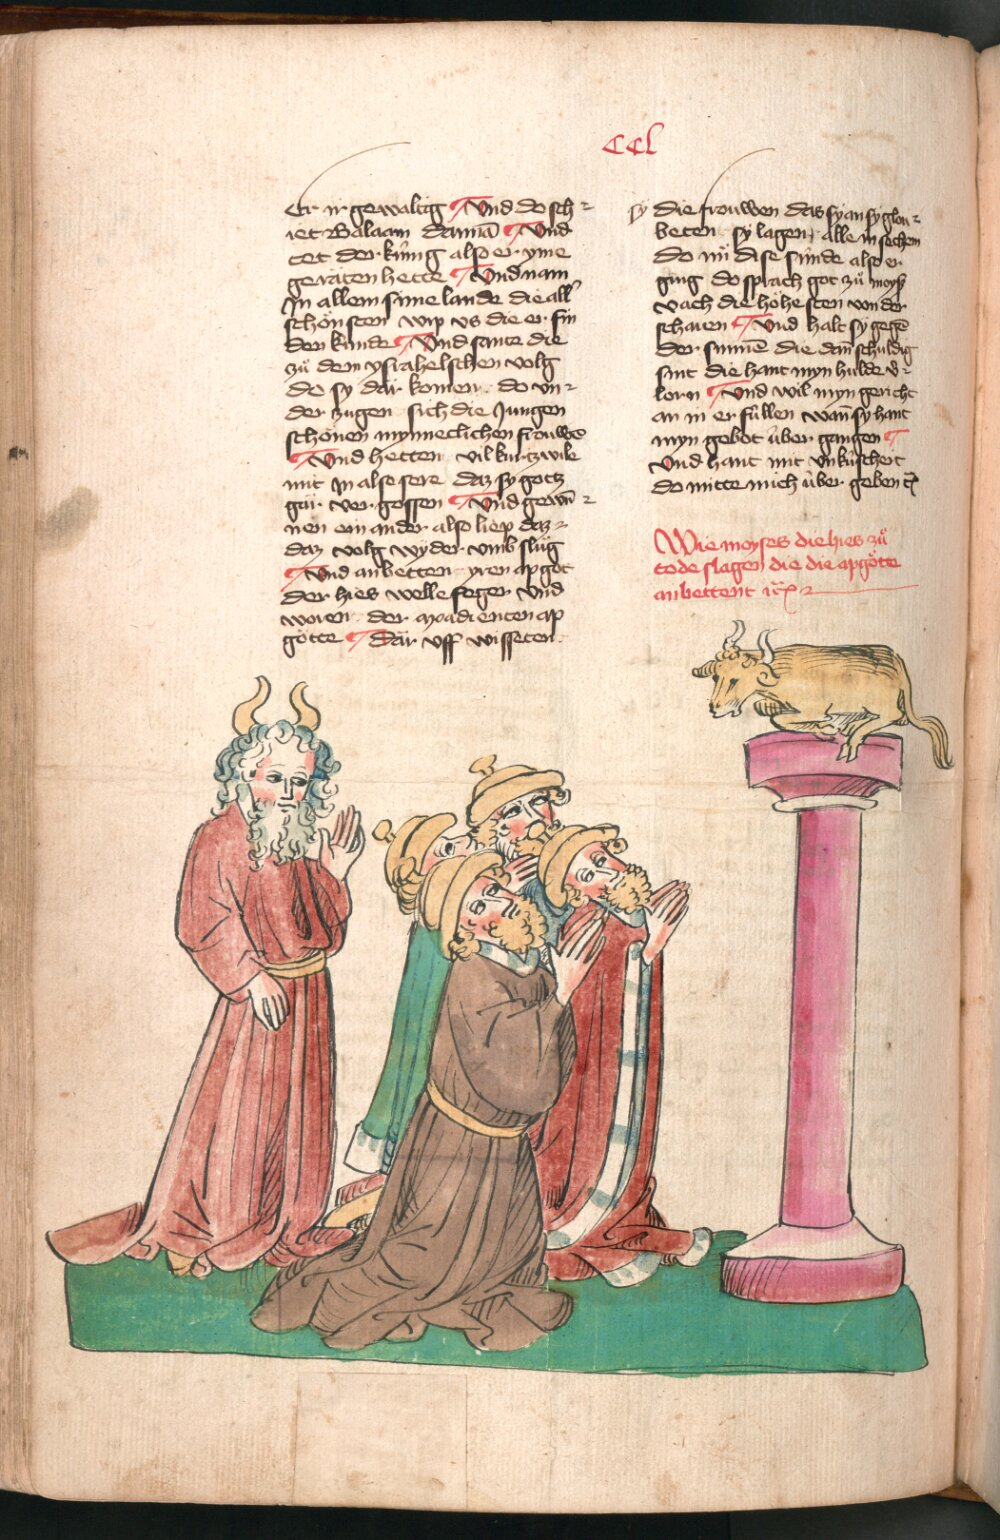 CCl
Er ir gewaltig Und do sch⸗
iet Balaam dannā Und
tet der kúnig also er yme
geraten hette Und nam
In allem sinne lande die all'
schönsten wip vs die er sin
den kunde Und sante die
zů dem ysrahelschen volg
do sy dar komen do vn⸗
der zugen sich die Jungen
schönen mynneclichen frouwē
Und hetten vil kurtzwile
mit In also sere daz sy gotz
gar ver gossen Und gewū⸗
nen ein ander also liep daz⸗
daz volg wyder vmb slůg
Und anbetten yren apgot
der hies welle feger Und
woren der madienten ap
götte Dar vff wisseten
sy die frouwen das sy an sy glou⸗
beten sy lagen alle in sechen
do nů dise sünde also er
ging do sprach got zů moys
vach die höhesten von der
schauen Und halt sy gegē
der sunnē die dañ schuldig
sint die hant myn hulde v̉⸗
lorn Und wil myn gericht
an in er füllen wañ sy hant
myn gebot über gangen
Und hant mit vnkúscheit
do mitte mich über geben
Wie moyses die hies zů
tode slagen die die apgötte
anbettent